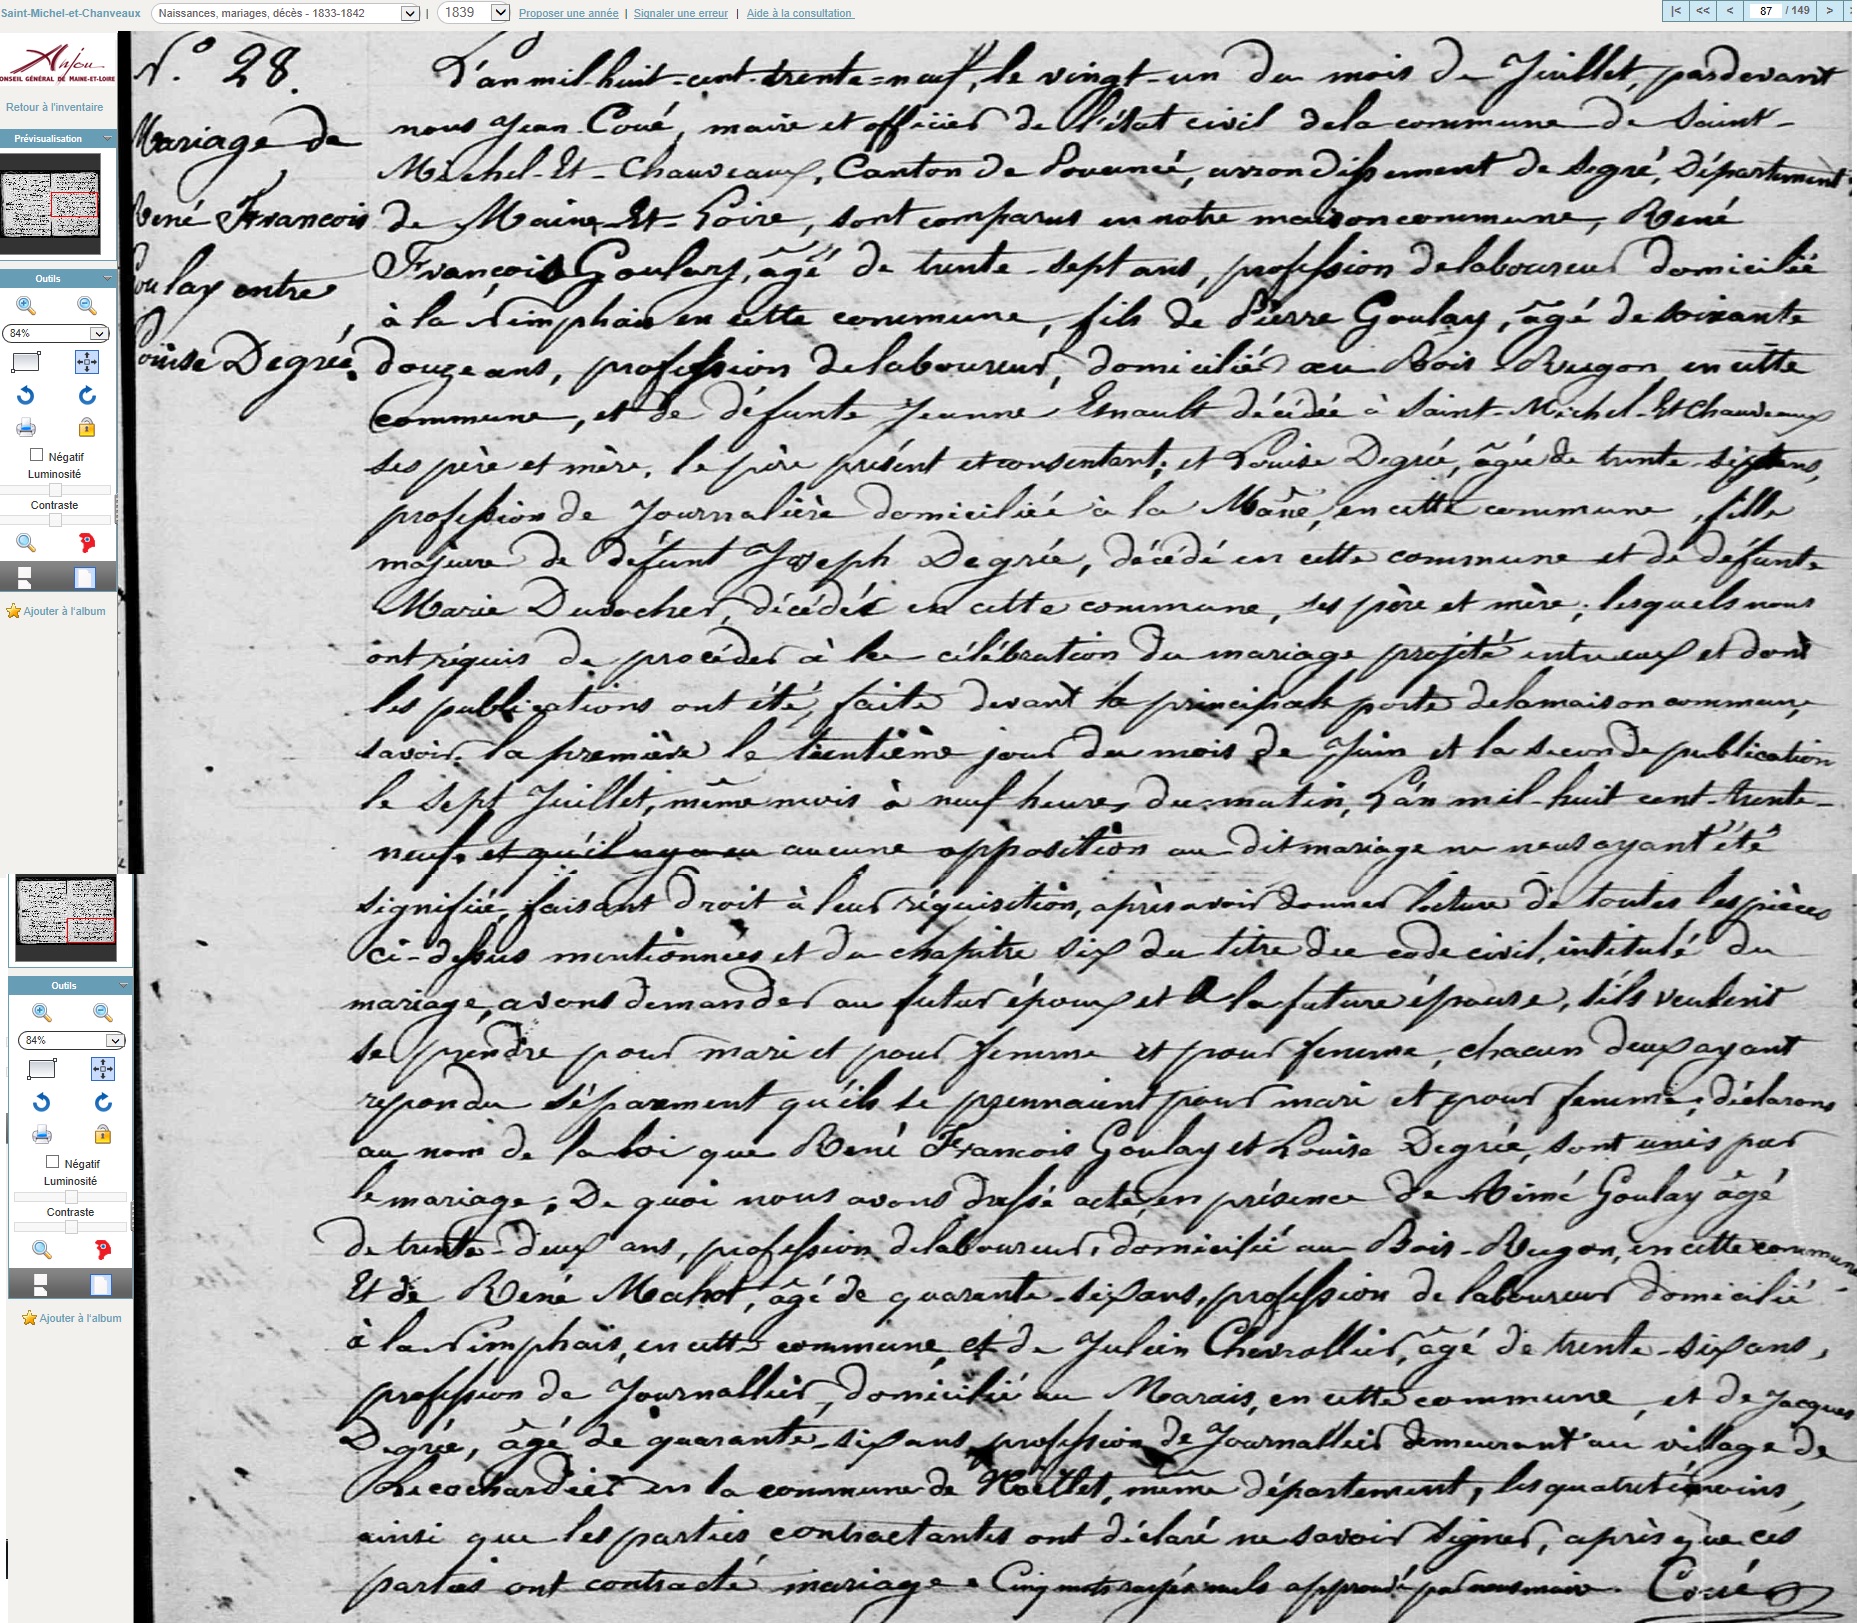 Saint-Michel-et-Chanveaux
Naissances, mariages, décès - 1833-1842
|
1839
Proposer une année | Signaler une erreur | Aide à la consultation
|< << < 87 / 149 >
Anjou
CONSEIL GÉNÉRAL DE MAINE-ET-LOIRE
Retour à l'inventaire
Prévisualisation
Outils
84%
Négatif
Luminosité
Contraste
Ajouter à l'album
Outils
84%
Négatif
Luminosité
Contraste
Ajouter à l'album
N.° 28.
Mariage de
René Francois
Goulay entre
Louise Degrée.
L'an mil-huit-cent-trente=neuf, le vingt-un du mois de Juillet, pardevant
nous Jean Coué, maire et officier de l'état civil dela commune de Saint-
Michel-Et-Chauveaux, Canton de Pouancé, arrondissement de Segré, Département
de Maine-Et-Loire, sont comparus en notre maison commune, René
François Goulay, âgé de trente-sept ans, profession delaboureur domicilié
à la Nimphais en cette commune, fils de Pierre Goulay, âgé de soixante
douze ans, profession delaboureur, domicilié au Bois-Rugon en cette
commune, et de défunte Jeanne Esnault décédée à Saint-Michel-Et Chauveaux
ses père et mère, le père présent et consentant; et Louise Degrée, âgée de trente
profession de Journalière domiciliée à la en cette commune, fille
majeure de défunt Joseph Degrée, décédé en cette commune et de défunte
Marie Durocher, décédée en cette commune, ses père et mère; lesquels nous
ont réquis de procéder à la célébration du mariage projété entre eux et dont
les publications ont été, faite devant la principale porte delamaison commune,
savoir. la première le trentième jour du mois de Juin et la seconde publication
le sept Juillet, même mois à neuf heures du matin, L'an mil-huit cent-trente-
neuf. et qu'il n'y a eu aucune opposition au dit mariage ne nous ayant été
signifiée, faisant droit à leur réquisition, après avoir donner lecture de toutes les pièces
ci-dessus mentionnées et du chapitre six du titre du code civil, intitulé du
mariage, avons demander au futur époux et à la future épouse, s'ils veulent
se prendre pour mari et pour femme et pour femme, chacun deux ayant
repondu séparement qu'ils se prennaient pour mari et pour femme; déclarons
au nom de la loi que René Francois Goulay et Louise Degrée, sont unis par
le mariage; De quoi nous avons dressé acte, en présence de Aimé Goulay âgé
de trente-deux ans, profession delaboureur, domicilié au Bois-Rugon, en cette commune
Et de René Mahot, âgé de quarante-six ans, profession de laboureur domicilié
à la Nimphais, en cette commune, et de Julien Chevrollier, âgé de trente-six ans,
profession de Journallier, domicilié au Marais, en cette commune, et de Jacques
Degrée, âgé de quarante-six ans, profession de Journallier demeurant au village de
en la commune de Noëllet, même département, les quatre témoins,
ainsi que les parties contractantes ont déclaré ne savoir signer, après que ces
parties ont contracté mariage. Cinq mots rayés nuls approuvé par nous maire. Coué